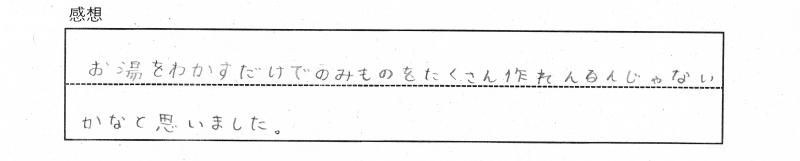 感想
お湯をわかすだけでのみものをたくさん作れんるんじゃない
かなと思いました。